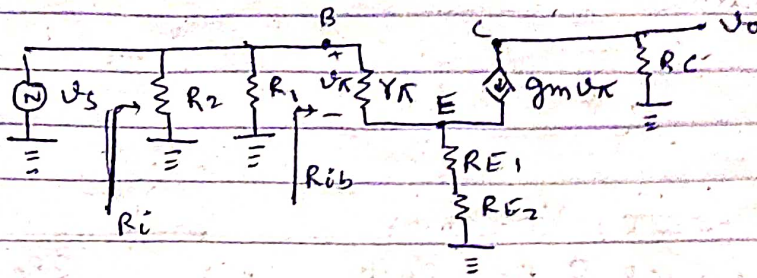 B
C
Vo
+
Vs
R2
R1
Vπ
rπ
gmVπ
RC
-
E
Rib
RE1
Ri
RE2